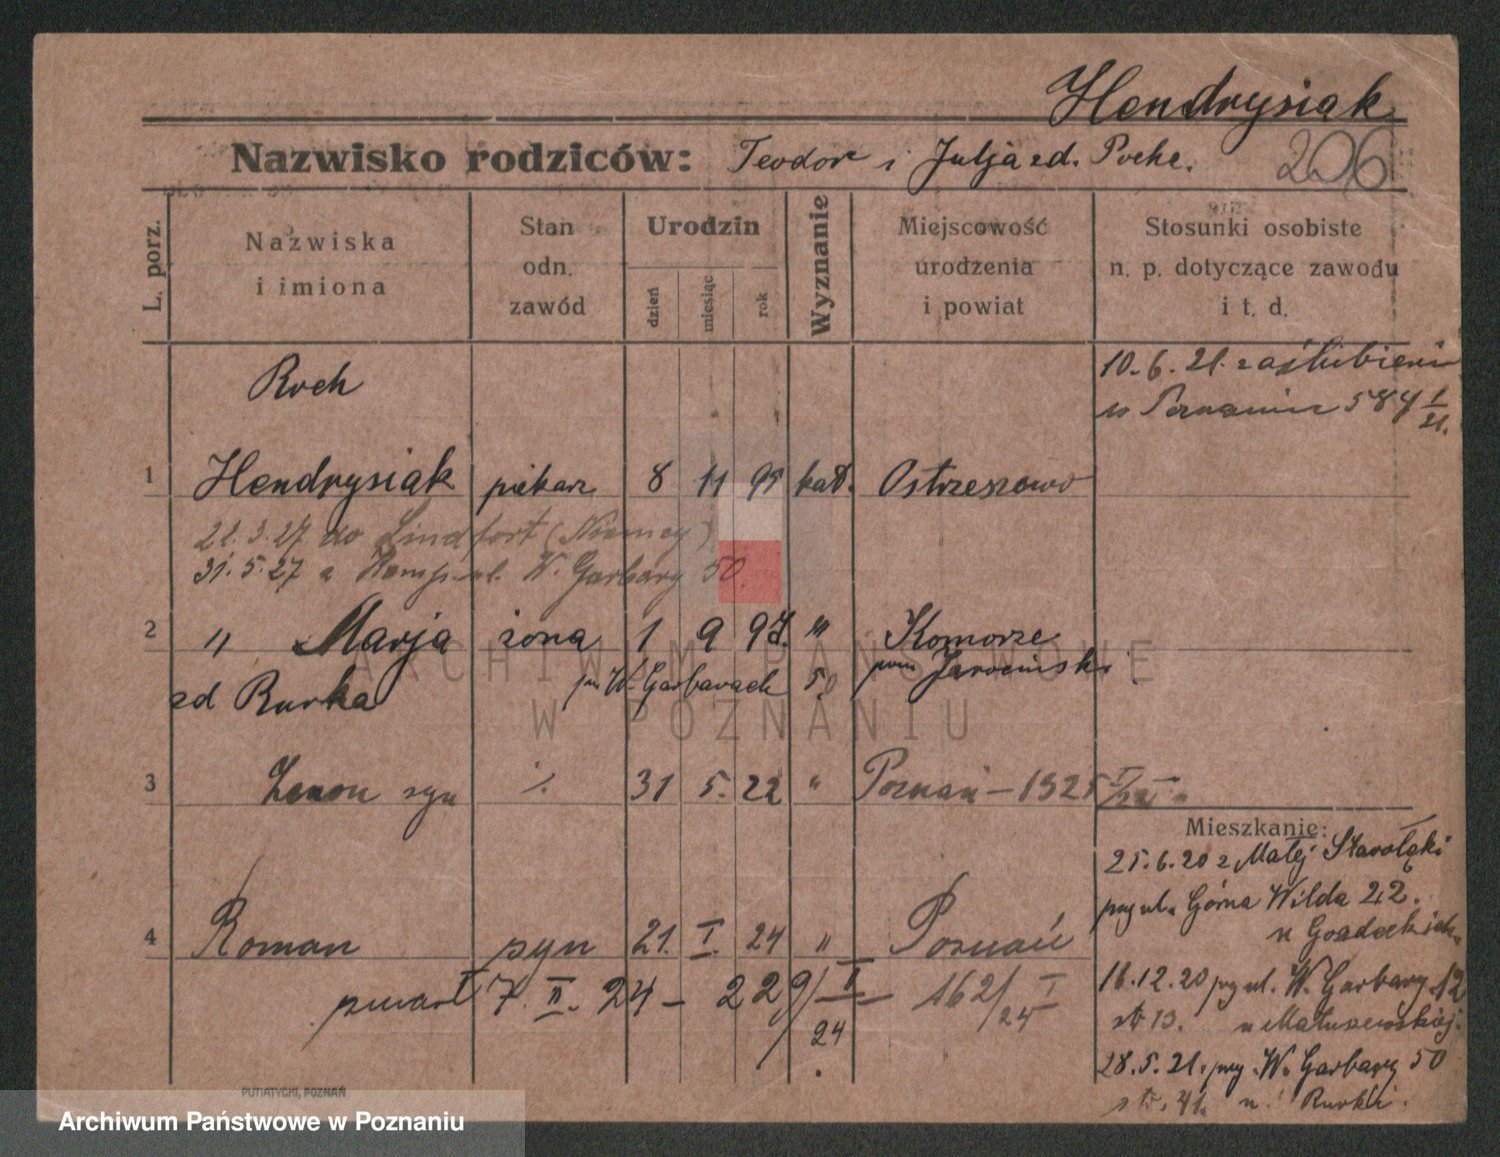 Hendrysiak
Nazwisko rodziców: Teodor i Julja zd. Poche.
206
L. porz.
Nazwiska i imiona
Stan odn. zawód
Urodzin
dzień miesiąc rok
Wyznanie
Miejscowość urodzenia i powiat
Stosunki osobiste n. p. dotyczące zawodu i t. d.
Roch
10. 6. 21. zaślubieni
w Poznaniu 584 1/21.
1 Hendrysiak piekarz 8 11 95 kat. Ostrzeszowo
21. 3. 27 do Lindfort (Niemcy)
31. 5. 27 W. Garbary 50.
2 " Marja żona 1 9 97. " Komorze
pow Jarocinski
zd Rurka W. Garbarach 50
3 Zenon syn ./. 31 5. 22 " Poznań – 1325
Mieszkanie:
25. 6. 20 z Małej Starołęki
przy ul. Górna Wilda 22.
4 Roman syn 21. I. 24 " Poznań
zmarł 7. II. 24 – 229/II 24 – 162/24 I
16. 12. 20 przy ul. W. Garbary 12
str 13. u Matuszewskiej.
28. 5. 21. przy W. Garbary 50
str. 41. u Rurki.
PUTIATYCKI, POZNAŃ
ARCHIWUM PAŃSTWOWE
W POZNANIU
Archiwum Państwowe w Poznaniu